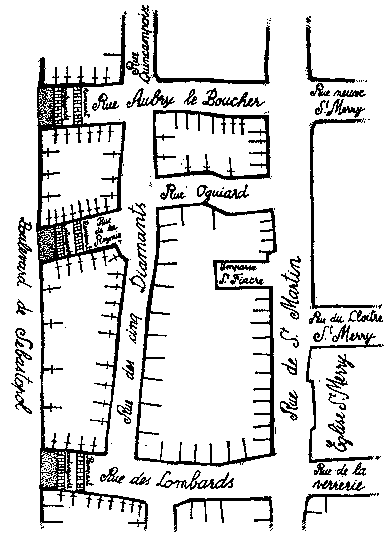 Rue
Quincampoix
Rue Aubry le Boucher
Rue neuve
St Merry
Rue Ogniard
Rue
de la
Reynie
Boulevard de Sébastopol
Rue des cinq Diamants
Impasse
St Fiacre
Rue de St Martin
Rue du Cloître
St Merry
Eglise St Merry
Rue des Lombards
Rue de la
verrerie